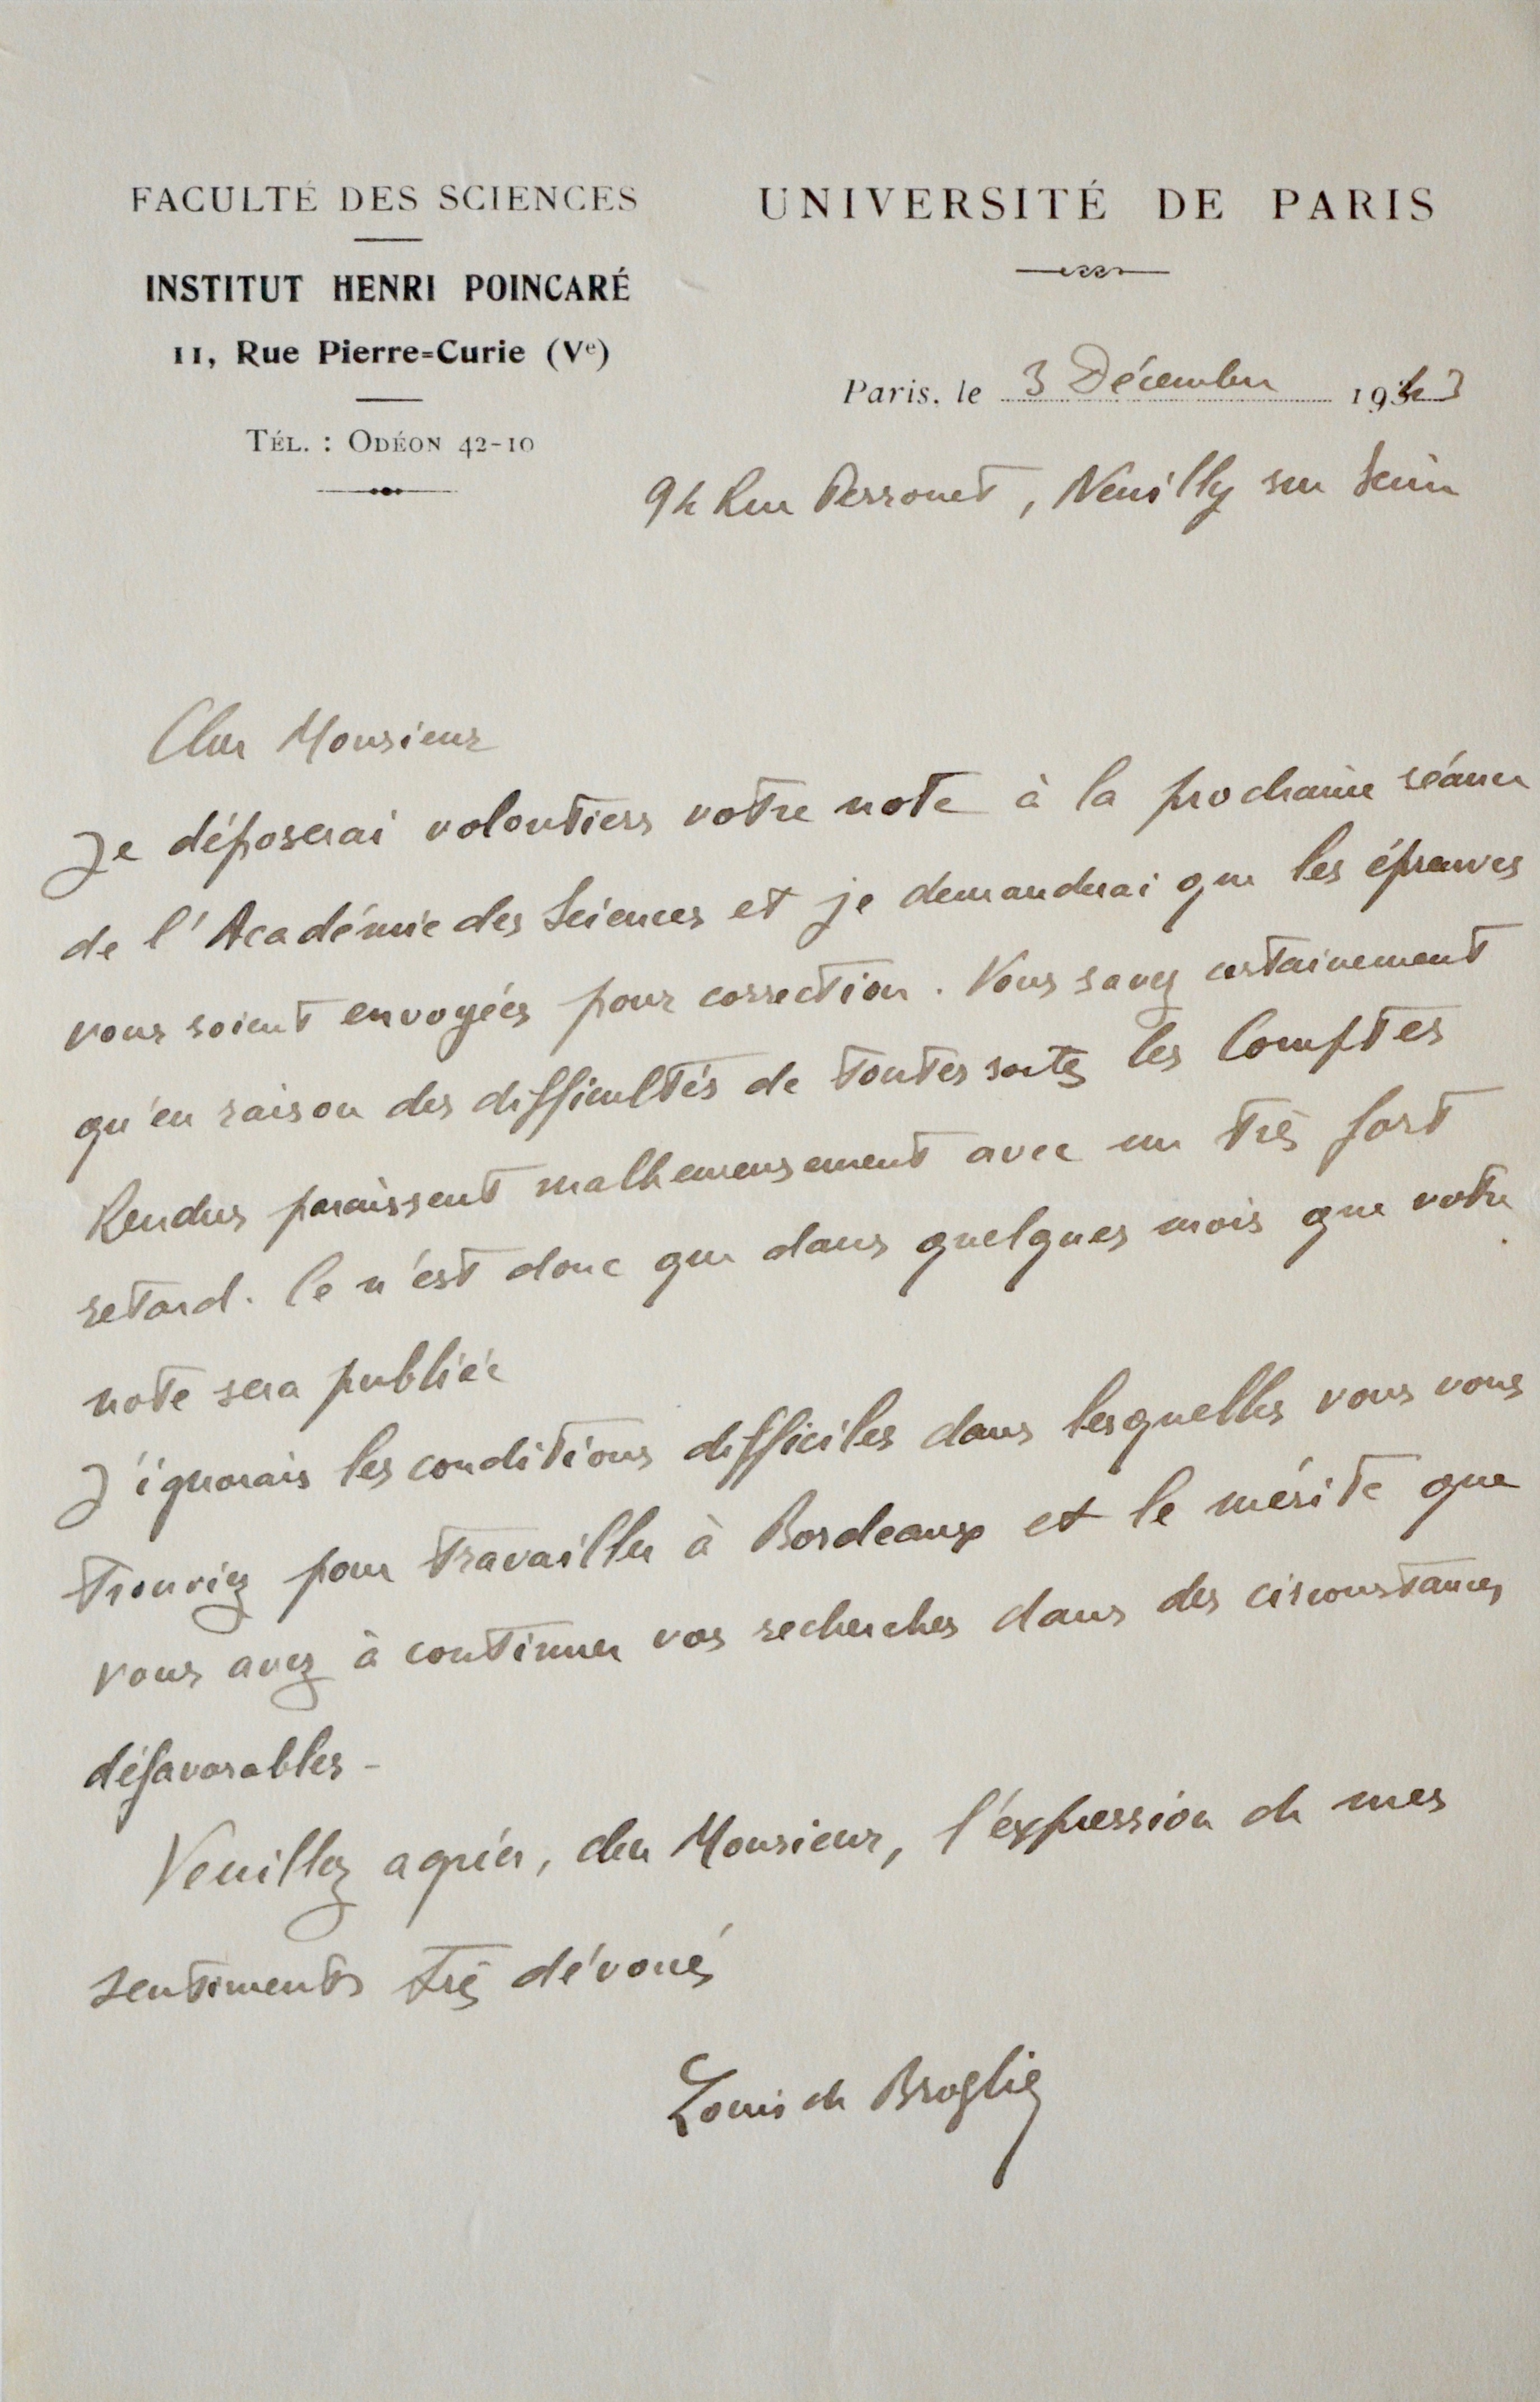 FACULTÉ DES SCIENCES
INSTITUT HENRI POINCARÉ
11, Rue Pierre=Curie (Ve)
TÉL. : ODÉON 42-10
UNIVERSITÉ DE PARIS
Paris, le 3 Décembre 1943
94 Rue Perronet, Neuilly sur Seine
Cher Monsieur
Je déposerai volontiers votre note à la prochaine séance
de l'Académie des Sciences et je demanderai que les épreuves
vous soient envoyées pour correction. Vous savez certainement
qu'en raison des difficultés de toutes sortes les Comptes
Rendus paraissent malheureusement avec un très fort
retard. Ce n'est donc que dans quelques mois que votre
note sera publiée
J'ignorais les conditions difficiles dans lesquelles vous vous
trouviez pour travailler à Bordeaux et le mérite que
vous avez à continuer vos recherches dans des circonstances
défavorables -
Veuillez agréer, cher Monsieur, l'expression de mes
sentiments très dévoués
Louis de Broglie